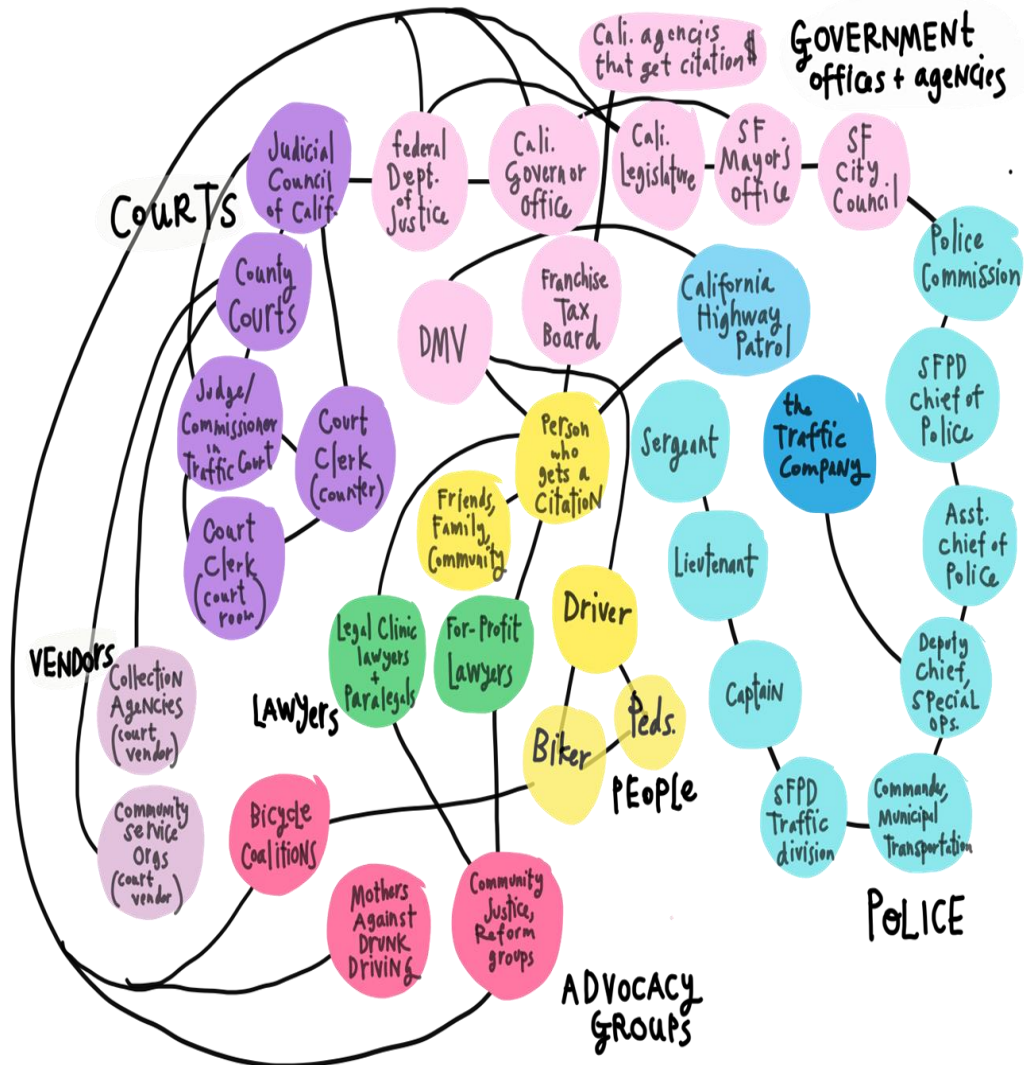 Cali. agencies
that get citation$
GOVERNMENT
offices + agencies
Judicial
Council
of Calif.
federal
Dept.
of
Justice
Cali.
Governor
Office
Cali.
Legislature
SF
Mayor's
Office
SF
City
Council
COURTS
Police
Commission
County
Courts
DMV
Franchise
Tax
Board
California
Highway
Patrol
SFPD
Chief of
Police
Judge/
Commissioner
in
Traffic Court
Court
Clerk
(counter)
Person
who
gets a
Citation
Sergeant
the
Traffic
Company
Friends,
Family,
Community
Asst.
Chief of
Police
Court
Clerk
(court
room)
Lieutenant
Legal Clinic
lawyers
+
Paralegals
For-Profit
Lawyers
Driver
Deputy
Chief,
Special
Ops.
VENDORS
Collection
Agencies
(court
vendor)
LAWYERS
Captain
Peds.
Biker
PEOPLE
Community
Service
Orgs
(court
vendor)
Bicycle
Coalitions
SFPD
Traffic
division
Commander,
Municipal
Transportation
Mothers
Against
Drunk
Driving
Community
Justice,
Reform
groups
POLICE
ADVOCACY
GROUPS